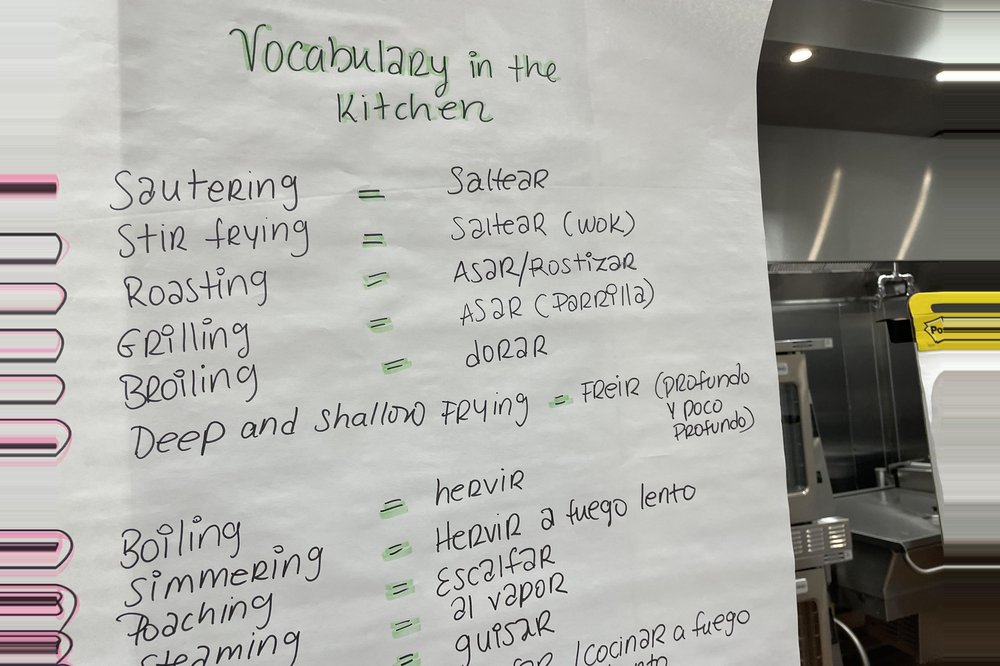 Vocabulary in the
Kitchen
Sautering = Saltear
Stir frying = Saltear (wok)
Roasting = Asar/Rostizar
Grilling = Asar (Parrilla)
Broiling = dorar
Deep and shallow Frying = Freir (profundo
y poco
profundo)
Boiling = hervir
Simmering = Hervir a fuego lento
Poaching = Escalfar
Steaming = al vapor
= guisar
/cocinar a fuego
Po